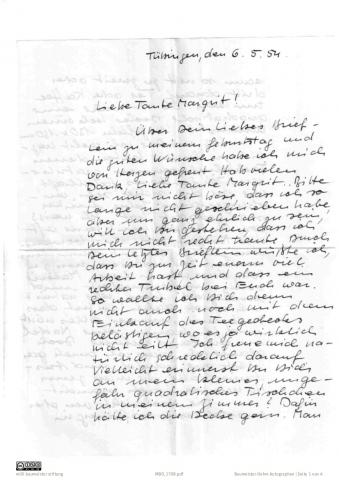 Tübingen, den 6. 5. 54.
Liebe Tante Margrit!
Über Dein liebes Brief-
lein zu meinem Geburtstag und
die guten Wünsche habe ich mich
von Herzen gefreut Hab vielen
Dank, liebe Tante Margrit. Bitte
sei mir nicht böse dass ich so
lange nicht geschrieben habe
aber um ganz ehrlich zu sein,
will ich Dir gestehen, dass ich
mich nicht recht traute Durch
Dein letztes Brieflein wußte ich,
dass Du zur Zeit enorm viel
Arbeit hast und dass ein
rechter Trubel bei Euch war.
So wollte ich Dich denn
nicht auch noch mit dem
Einkauf des Teegedeckes
belästigen wo es ja wirklich
nicht eilt. Ich freue mich na-
türlich schrecklich darauf
Vielleicht erinnerst Du Dich
an mein kleines, unge-
fähr quadratisches Tischchen
in meinem Zimmer? Dafür
hätte ich die Decke gern. Man
willi baumeister stiftung
Seite 1 von 4